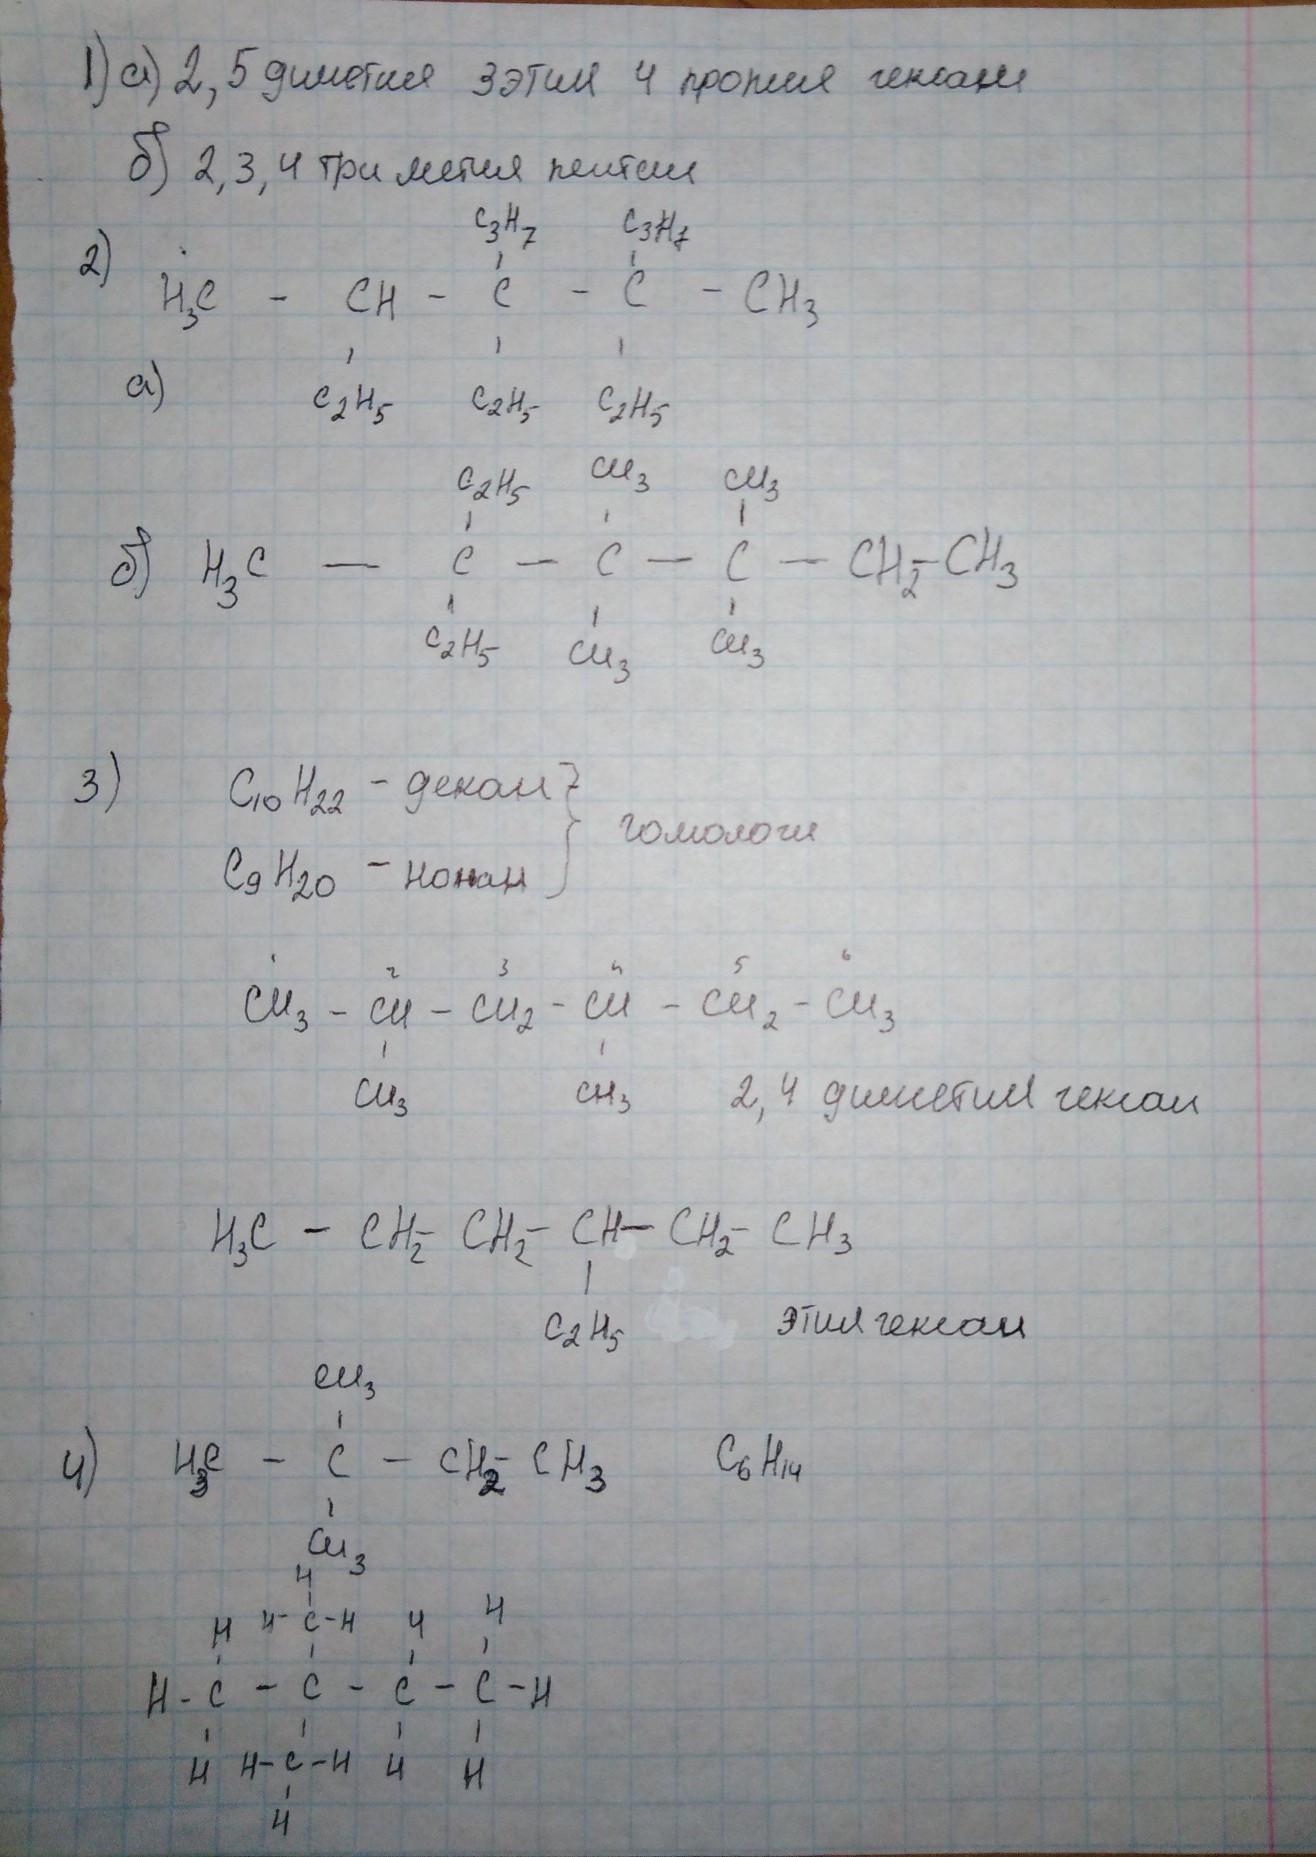 1) а) 2,5 диметил 3 этил 4 пропил гексан
б) 2,3,4 триметил пентан
C3H7 C3H7
2) H3C - CH - C - C - CH3
а) C2H5 C2H5 C2H5
C2H5 CH3 CH3
б) H3C — C — C — C — CH2 - CH3
C2H5 CH3 CH3
3) C10H22 - декан
гомологи
C9H20 - нонан
1 2 3 4 5 6
CH3 - CH - CH2 - CH - CH2 - CH3
CH3 CH3 2,4 диметил гексан
H3C - CH2 - CH2 - CH - CH2 - CH3
C2H5 этил гексан
CH3
4) H3C - C - CH2 - CH3 C6H14
CH3
H
H H - C - H H H
H - C - C - C - C - H
H H - C - H H H
H